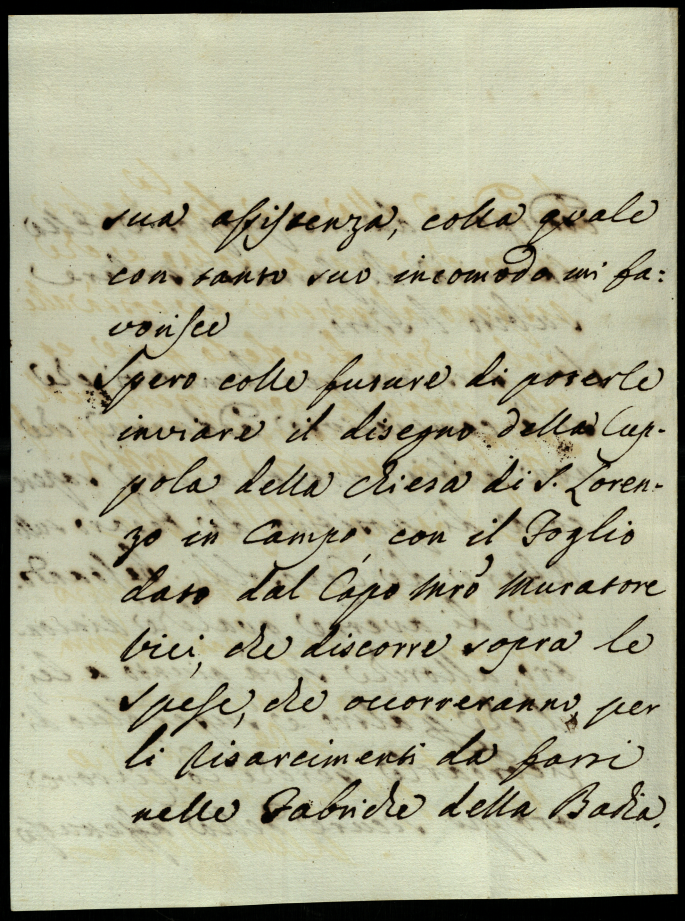 sua assistenza, colla quale
con tanto suo incomodo mi fa:
vorisce
Spero colle future di poterle
inviare il disegno della Cup-
pola della chiesa di S. Loren-
zo in Campo, con il Foglio
dato dal Capo Mrõ Muratore
Vici, che discorre sopra le
spese, che occorreranno per
li risarcimenti da farsi
nelle Fabriche della Badia.